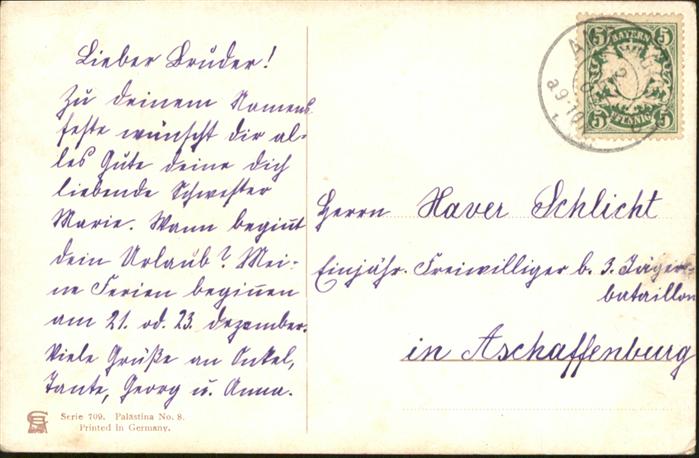 Lieber Bruder!
Zu deinem Namens
feste wünscht dir al-
les Gute deine dich
liebende Schwester
Marie. Wann beginnt
dein Urlaub? Mei-
ne Ferien beginnen
am 21. od. 23. dezember.
Viele Grüße an Onkel,
Tante, Georg u. Anna.
Serie 709. Palästina No. 8.
Printed in Germany.
BAYERN
5 5
5 5
PFENNIG
Herrn Xaver Schlicht
Einjähr. Freiwilliger b. 3. Jäger-
bataillon
in Aschaffenburg